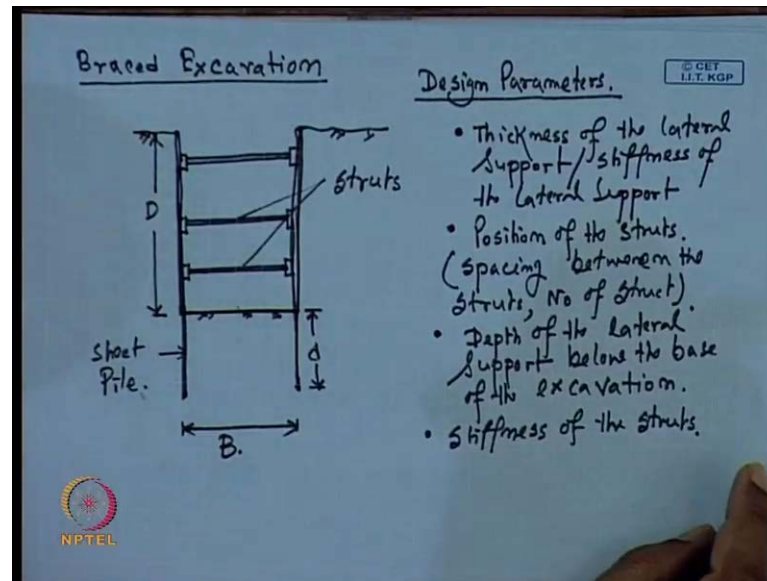 Braced Excavation
D
struts
sheet
Pile.
d
B.
Design Parameters.
© CET
I.I.T. KGP
• Thickness of the lateral
support/stiffness of
the lateral support
• Position of the struts.
(spacing betweenm the
struts, No of struct).
• Depth of the lateral
support below the base
of the excavation.
• stiffness of the struts.
NPTEL